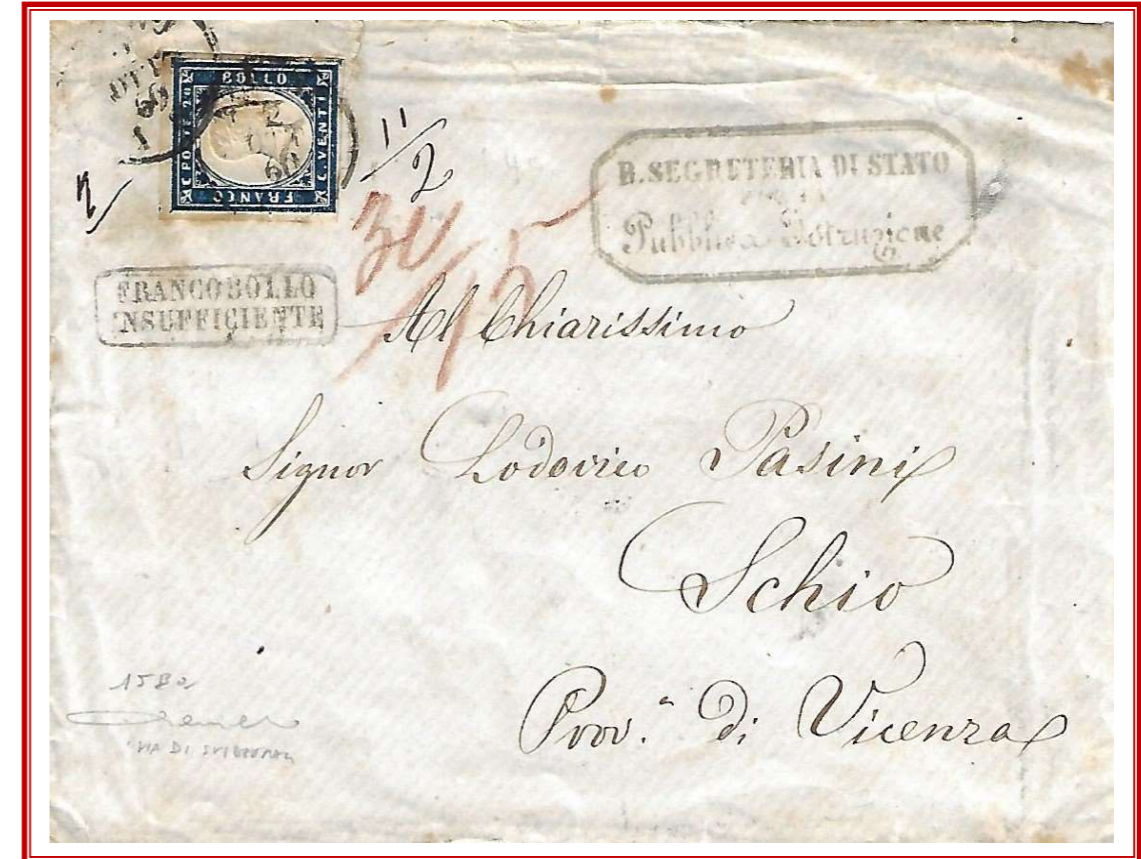 C POSTE 20
BOLLO
C. VENTI
FRANCO
60
2
11/2
R. SEGRETERIA DI STATO
Pubblica Istruzione
30
15
FRANCOBOLLO
INSUFFICIENTE
Al Chiarissimo
Signor Lodovico Pasini
Schio
Prov.a di Vicenza
VIA DI